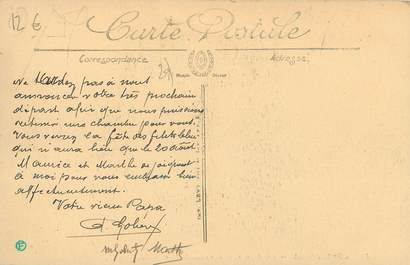 12 €
Carte Postale
Correspondance
Adresse
Ne tardez pas à nous
annoncer votre très prochain
départ afin que nous puissions
retenir une chambre pour vous.
Vous verrez la fête des filets bleus
qui n'aura lieu que le 20 août
Maurice et Marthe se joignent
à moi pour vous embrasser bien
affectueusement.
Votre vieux Papa